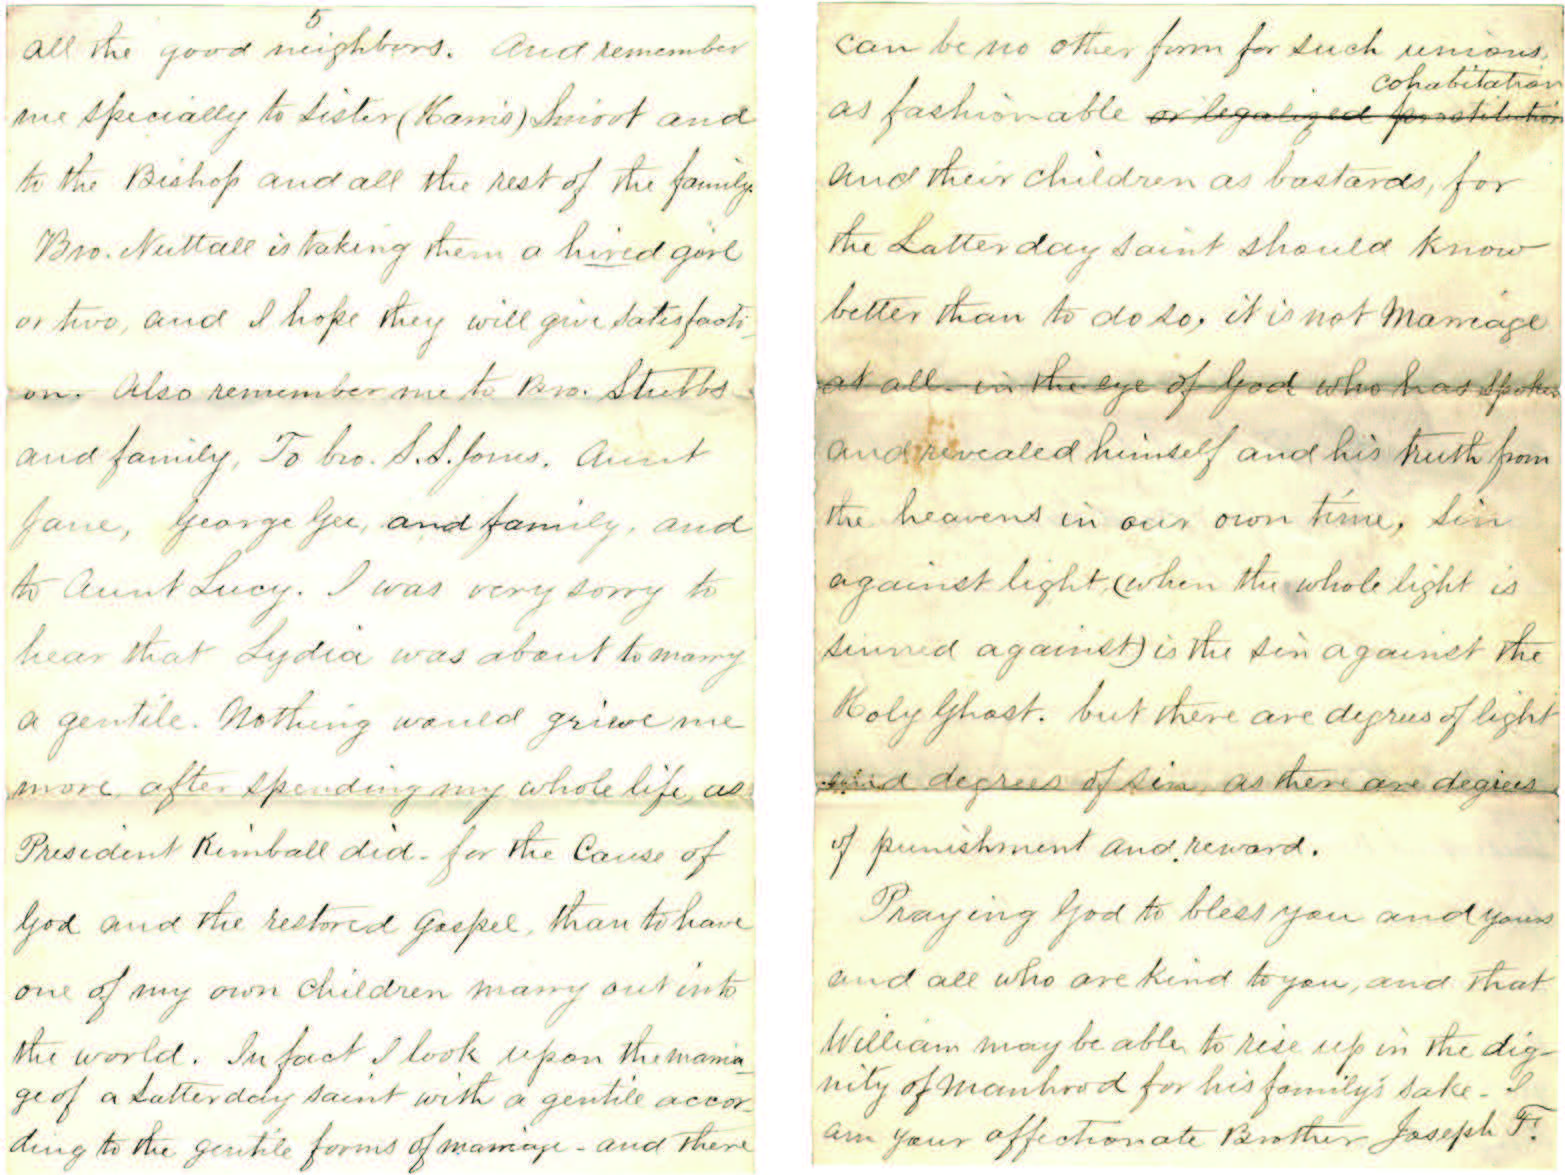 5
all the good neighbors. And remember
me specially to Sister (Harris) Smoot and
to the Bishop and all the rest of the family.
Bro. Nuttall is taking them a hired girl
or two, and I hope they will give satisfacti-
on. Also remember me to Bro. Stubbs
and family, To bro. S.S. Jones. Aunt
Jane, George Gee, and family, and
to Aunt Lucy. I was very sorry to
hear that Lydia was about to marry
a gentile. Nothing would grieve me
more, after spending my whole life, as
President Kimball did - for the Cause of
God and the restored Gospel, than to have
one of my own children marry out into
the world. In fact I look upon the marria-
ge of a Latterday saint with a gentile accor-
ding to the gentile forms of marriage - and there
can be no other form for such unions,
cohabitation
as fashionable or legalized prostitution
and their children as bastards, for
the Latterday saint should know
better than to do so. it is not Marriage
at all - in the eye of God who has spoken
and revealed himself and his truth from
the heavens in our own time, Sin
against light, (when the whole light is
sinned against) is the sin against the
Holy Ghost. but there are degrees of light
and degrees of sin, as there are degrees
of punishment and reward.
Praying God to bless you and yours
and all who are kind to you, and that
William may be able to rise up in the dig-
nity of manhood for his family's sake - I
am your affectionate Brother Joseph F.